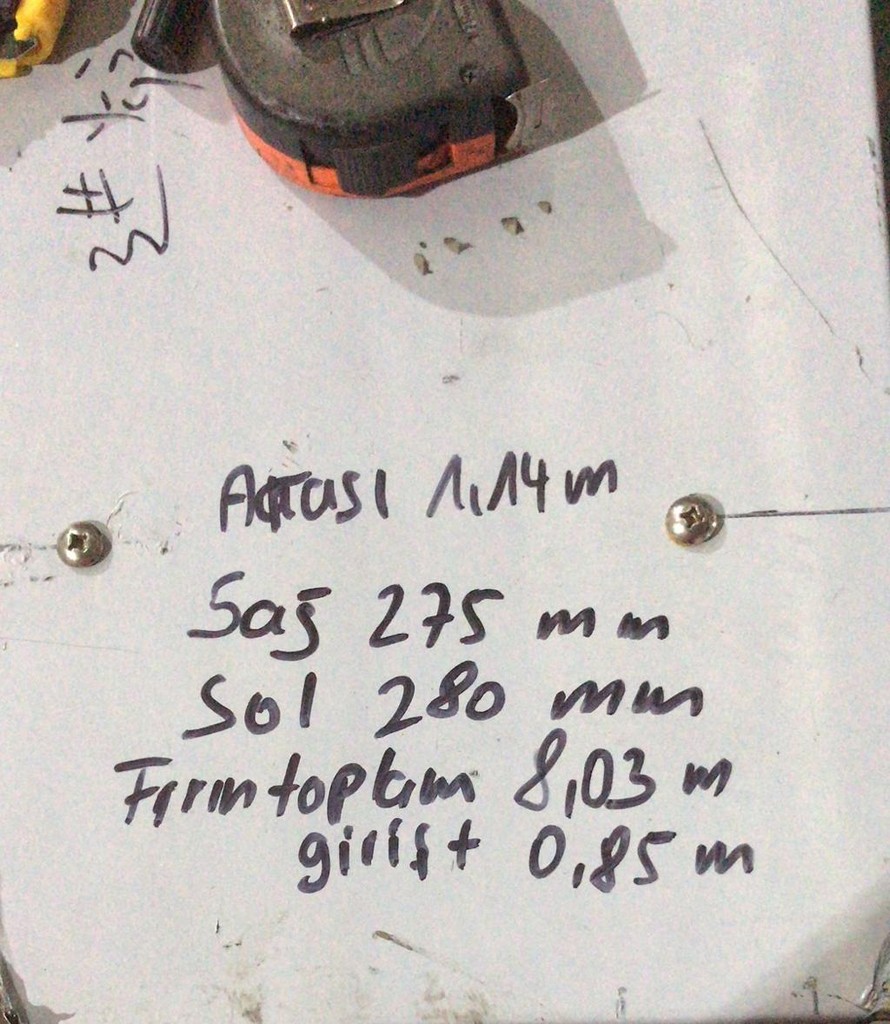 Arası 1,14 m
Sağ 275 mm
Sol 280 mm
Fırın toplam 8,03 m
giriş + 0,85 m